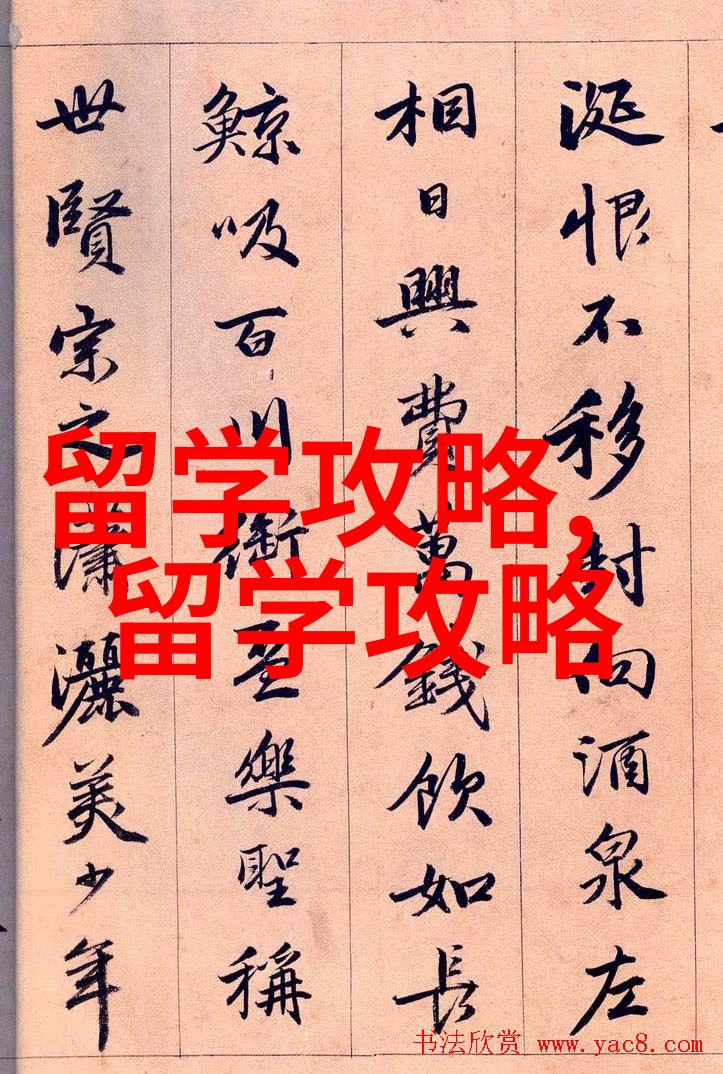 涎恨不移封向酒泉左
相日興費萬錢飲如長
鯨吸百川銜盃樂聖稱
世賢宗之瀟灑美少年
留学攻略,
留学攻略
书法欣赏 www.yac8.com